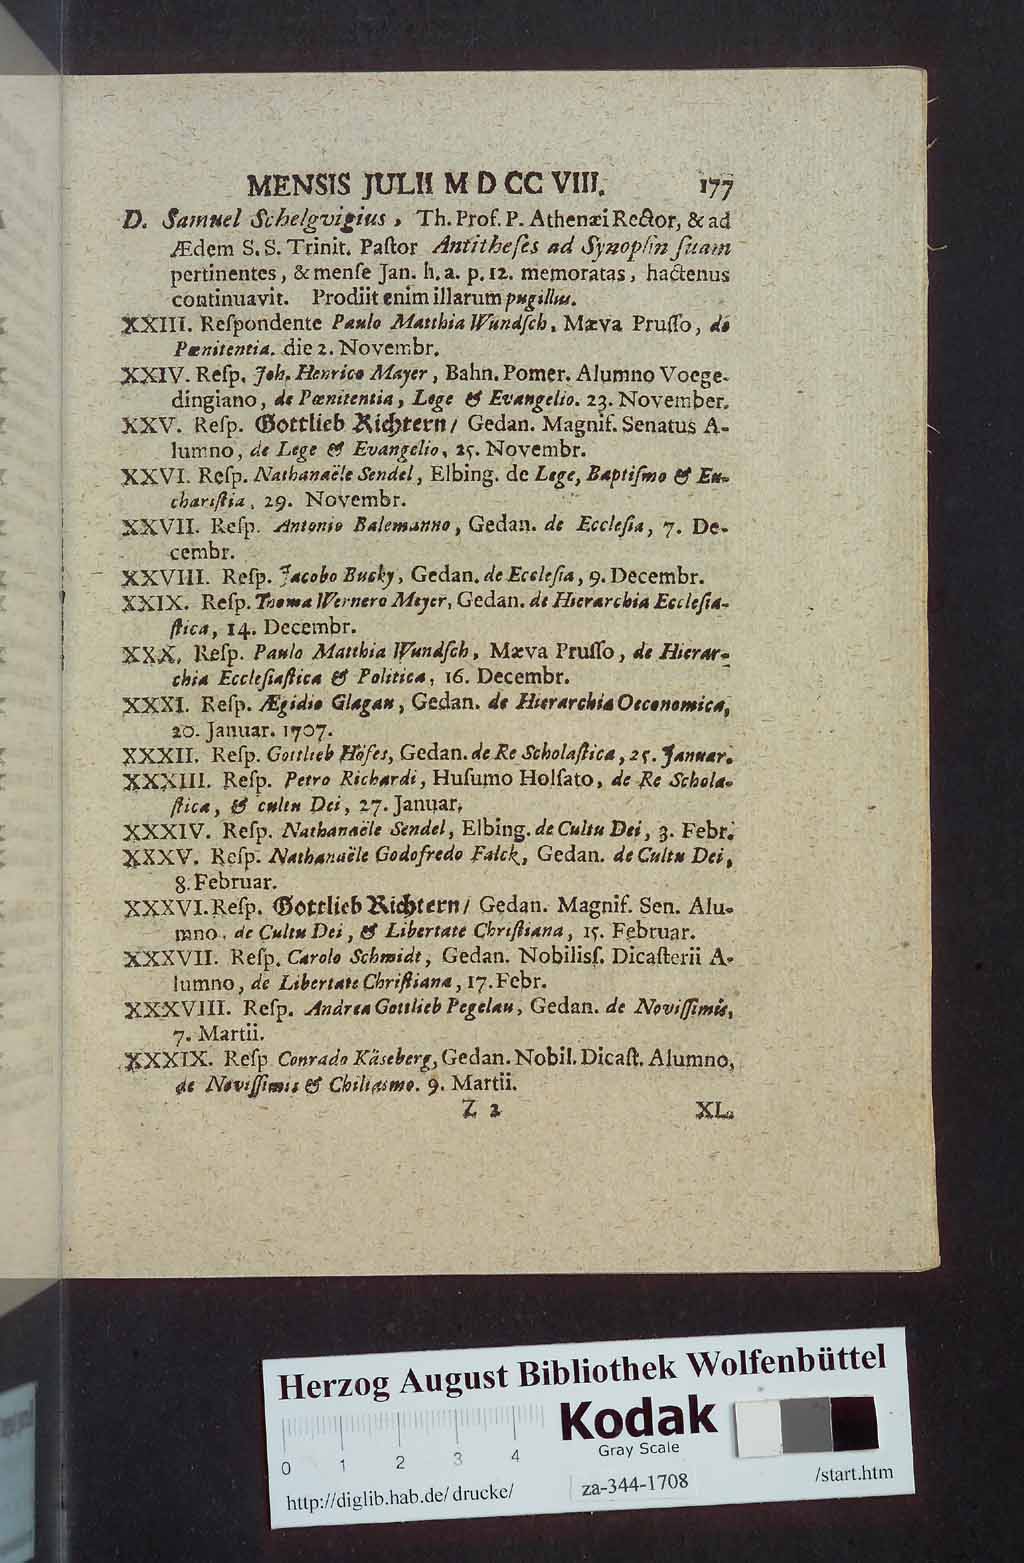 MENSIS JULII M D CC VIII. 177
D. Samuel Schelgvigius, Th. Prof. P. Athenæi Rector, & ad
Ædem S. S. Trinit. Paſtor Antitheſes ad Synopſin ſuam
pertinentes, & menſe Jan. h. a. p. 12. memoratas, hactenus
continuavit. Prodiit enim illarum pugillus.
XXIII. Reſpondente Paulo Matthia Wundſch, Mæva Pruſſo, de
Pœnitentia. die 2. Novembr.
XXIV. Reſp. Joh. Henrico Mayer, Bahn. Pomer. Alumno Voege-
dingiano, de Pœnitentia, Lege & Evangelio. 23. November.
XXV. Reſp. Gottlieb Richtern / Gedan. Magnif. Senatus A-
lumno, de Lege & Evangelio, 25. Novembr.
XXVI. Reſp. Nathanaële Sendel, Elbing. de Lege, Baptiſmo & Eu-
chariſtia, 29. Novembr.
XXVII. Reſp. Antonio Balemanno, Gedan. de Eccleſia, 7. De-
cembr.
XXVIII. Reſp. Jacobo Bucky, Gedan. de Eccleſia, 9. Decembr.
XXIX. Reſp. Thoma Wernero Meyer, Gedan. de Hierarchia Eccleſia-
ſtica, 14. Decembr.
XXX. Reſp. Paulo Matthia Wundſch, Mæva Pruſſo, de Hierar-
chia Eccleſiaſtica & Politica, 16. Decembr.
XXXI. Reſp. Ægidio Glagau, Gedan. de Hierarchia Oeconomica,
20. Januar. 1707.
XXXII. Reſp. Gottlieb Höfes, Gedan. de Re Scholaſtica, 25. Januar.
XXXIII. Reſp. Petro Richardi, Huſumo Holſato, de Re Schola-
ſtica, & cultu Dei, 27. Januar.
XXXIV. Reſp. Nathanaële Sendel, Elbing. de Cultu Dei, 3. Febr.
XXXV. Reſp. Nathanaële Godofredo Falck, Gedan. de Cultu Dei,
8. Februar.
XXXVI. Reſp. Gottlieb Richtern / Gedan. Magnif. Sen. Alu-
mno, de Cultu Dei, & Libertate Chriſtiana, 15. Februar.
XXXVII. Reſp. Carolo Schmidt, Gedan. Nobiliſſ. Dicaſterii A-
lumno, de Libertate Chriſtiana, 17. Febr.
XXXVIII. Reſp. Andrea Gottlieb Pegelau, Gedan. de Noviſſimis,
7. Martii.
XXXIX. Reſp Conrado Käseberg, Gedan. Nobil. Dicaſt. Alumno,
de Noviſſimis & Chiliasmo. 9. Martii.
Z 2 XL.
Herzog August Bibliothek Wolfenbüttel
Kodak
Gray Scale
0 1 2 3 4
http://diglib.hab.de/drucke/ za-344-1708 /start.htm